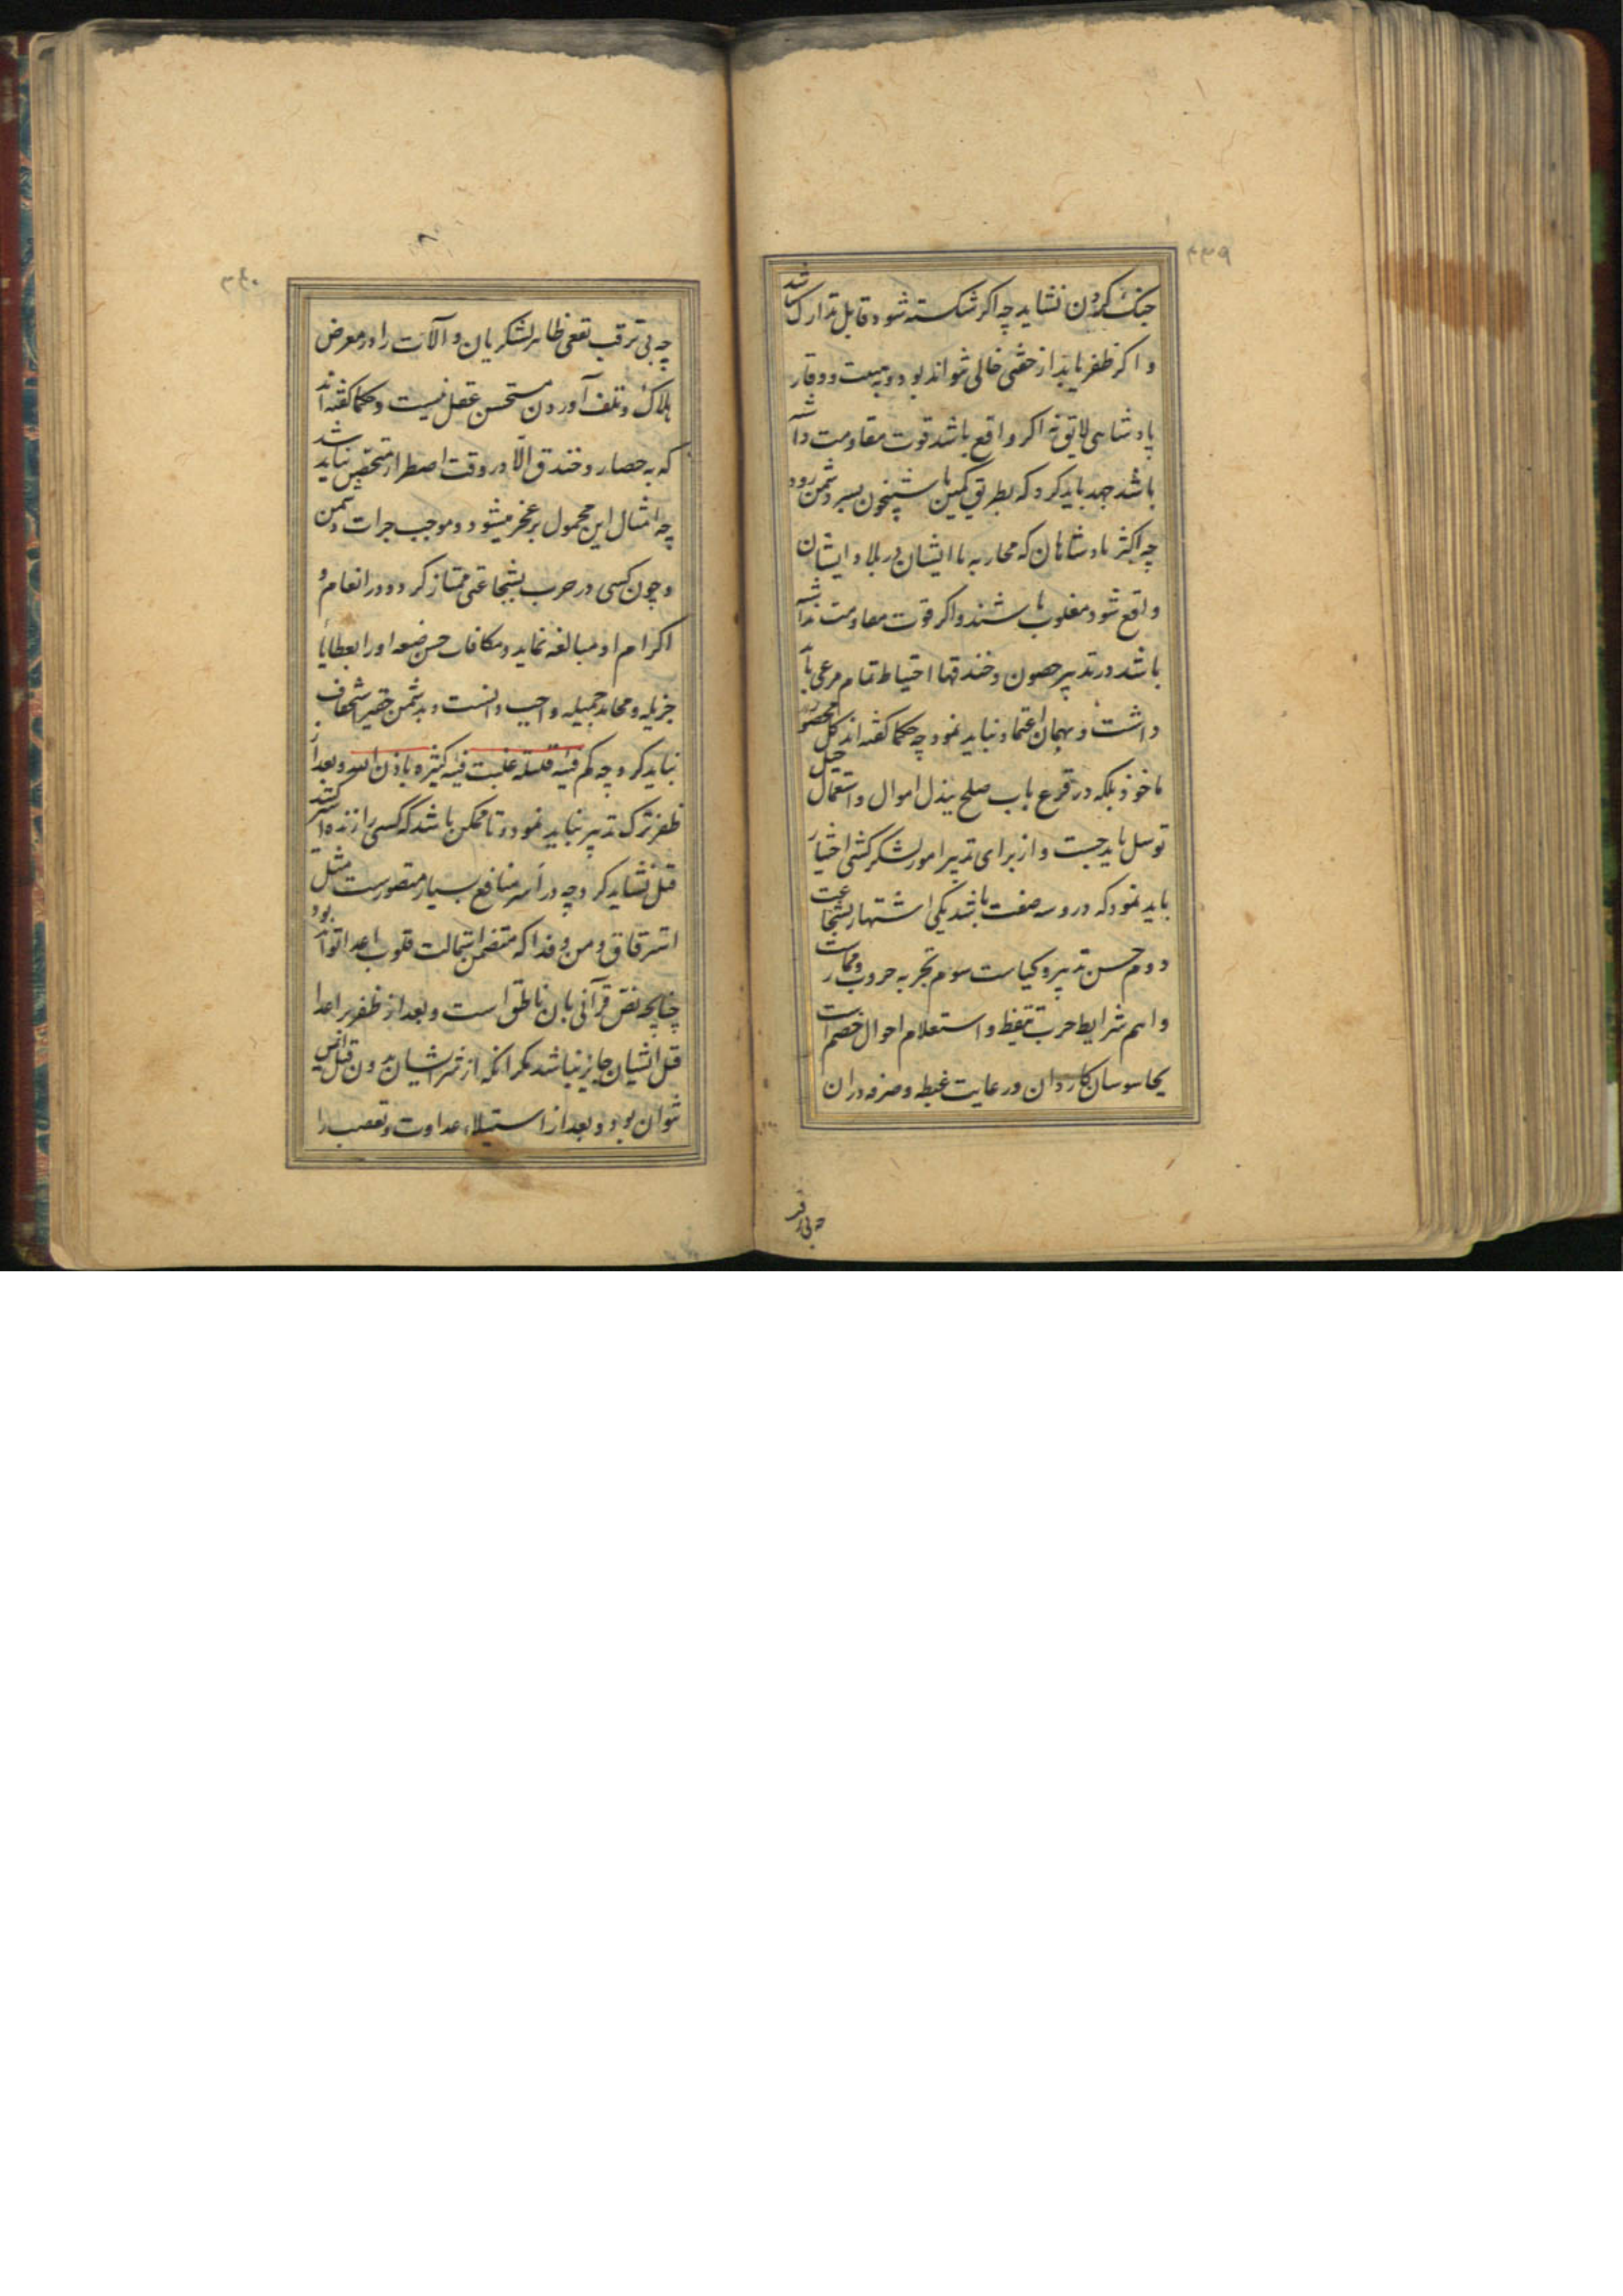 ۳۳۹
جنک کردن نشاید چه اکر شکسته شود قابل تدارک نباشد
و اکر ظفر یابد از خفتی خالی نتواند بود و بهیبت و وقار
پادشاهی لایق نه اکر واقع باشد قوت مقاومت داشته
باشد جهد باید کرد که بطریق کمین یا شبیخون بسر دشمن رود
چه اکثر پادشاهان که محاربه با ایشان در بلاد ایشان
واقع شود مغلوب باشند و اکر قوت مقاومت نداشته
باشد در تدبیر حصون و خندقها احتیاط تمام مرعی باید
داشت و بهمان اعتماد نباید نمود چه حکما کفته اند کل محصور
ماخوذ بلکه در قرع باب صلح ببذل اموال و استعمال حیل
توسل باید جست و از برای تدبیر امور لشکر کشی اختیار
باید نمود که درو سه صفت باشد یکی اشتهار بشجاعت
دوم حسن تدبیر و کیاست سوم تجربه حروب و ممارست
و اهم شرایط حرب تیقظ و استعلام احوال خصم است
بجاسوسان کاردان و رعایت غبطه و صرفه دران
چه بی ترقب
۳۴۰
چه بی ترقب نفعی ظاهر لشکریان و آلات را در معرض
هلاک و تلف آوردن مستحسن عقل نیست و حکما کفته اند
که به حصار و خندق الا در وقت اضطرار متحصن نباید شد
چه امثال این محمول بر عجز میشود و موجب جرات دشمن
و چون کسی در حرب بشجاعتی ممتاز کردد در انعام و
اکرام او مبالغه نماید و مکافات حسن صنعه او را بعطایا
جزیله و محامد جمیله واجب دانست و بدشمن حقیر استخفاف
نباید کرد چه کم فئه قلیله غلبت فئه کثیره باذن الله و بعد از
ظفر ترک تدبیر نباید نمود و تا ممکن باشد که کسی را زنده اسیر کنند
قتل نشاید کرد چه در اسر منافع بسیار متصورست مثل
استرقاق و من و فدا که متضمن استمالت قلوب اعدا تواند بود
چنانچه نص قرآنی بان ناطق است و بعد از ظفر بر اعدا
قتل ایشان جایز نباشد مکر انکه از شر ایشان بدون قتل ایمن
نتوان بود و بعد از استیلاء عداوت و تعصب را